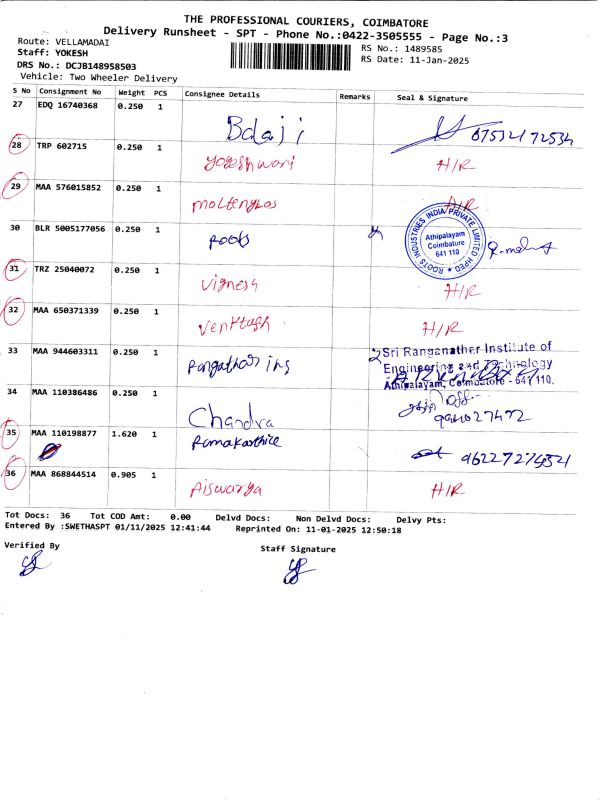 THE PROFESSIONAL COURIERS, COIMBATORE
Delivery Runsheet - SPT - Phone No.:0422-3505555 - Page No.:3
Route: VELLAMADAI
Staff: YOKESH
DRS No.: DCJB148958503
Vehicle: Two Wheeler Delivery
RS No.: 1489585
RS Date: 11-Jan-2025
S No Consignment No Weight PCS Consignee Details Remarks Seal & Signature
27 EDQ 16740368 0.250 1 Balaji
28 TRP 602715 0.250 1 yogeshwari H/R
29 MAA 576015852 0.250 1 H/R
30 BLR 5005177056 0.250 1 Roots
ROOTS INDUSTRIES INDIA PRIVATE LIMITED HPED
Athipalayam
Coimbatore
641 110
31 TRZ 25040072 0.250 1 Vignesh H/R
32 MAA 650371339 0.250 1 H/R
33 MAA 944603311 0.250 1
Sri Ranganather Institute of
Engineering and Technology
Athipalayam, Coimbatore - 641 110.
34 MAA 110386486 0.250 1 Chandra
35 MAA 110198877 1.620 1 Ramakarthice
36 MAA 868844514 0.905 1 Aiswarya H/R
Tot Docs: 36 Tot COD Amt: 0.00 Delvd Docs: Non Delvd Docs: Delvy Pts:
Entered By :SWETHASPT 01/11/2025 12:41:44 Reprinted On: 11-01-2025 12:50:18
Verified By
Staff Signature